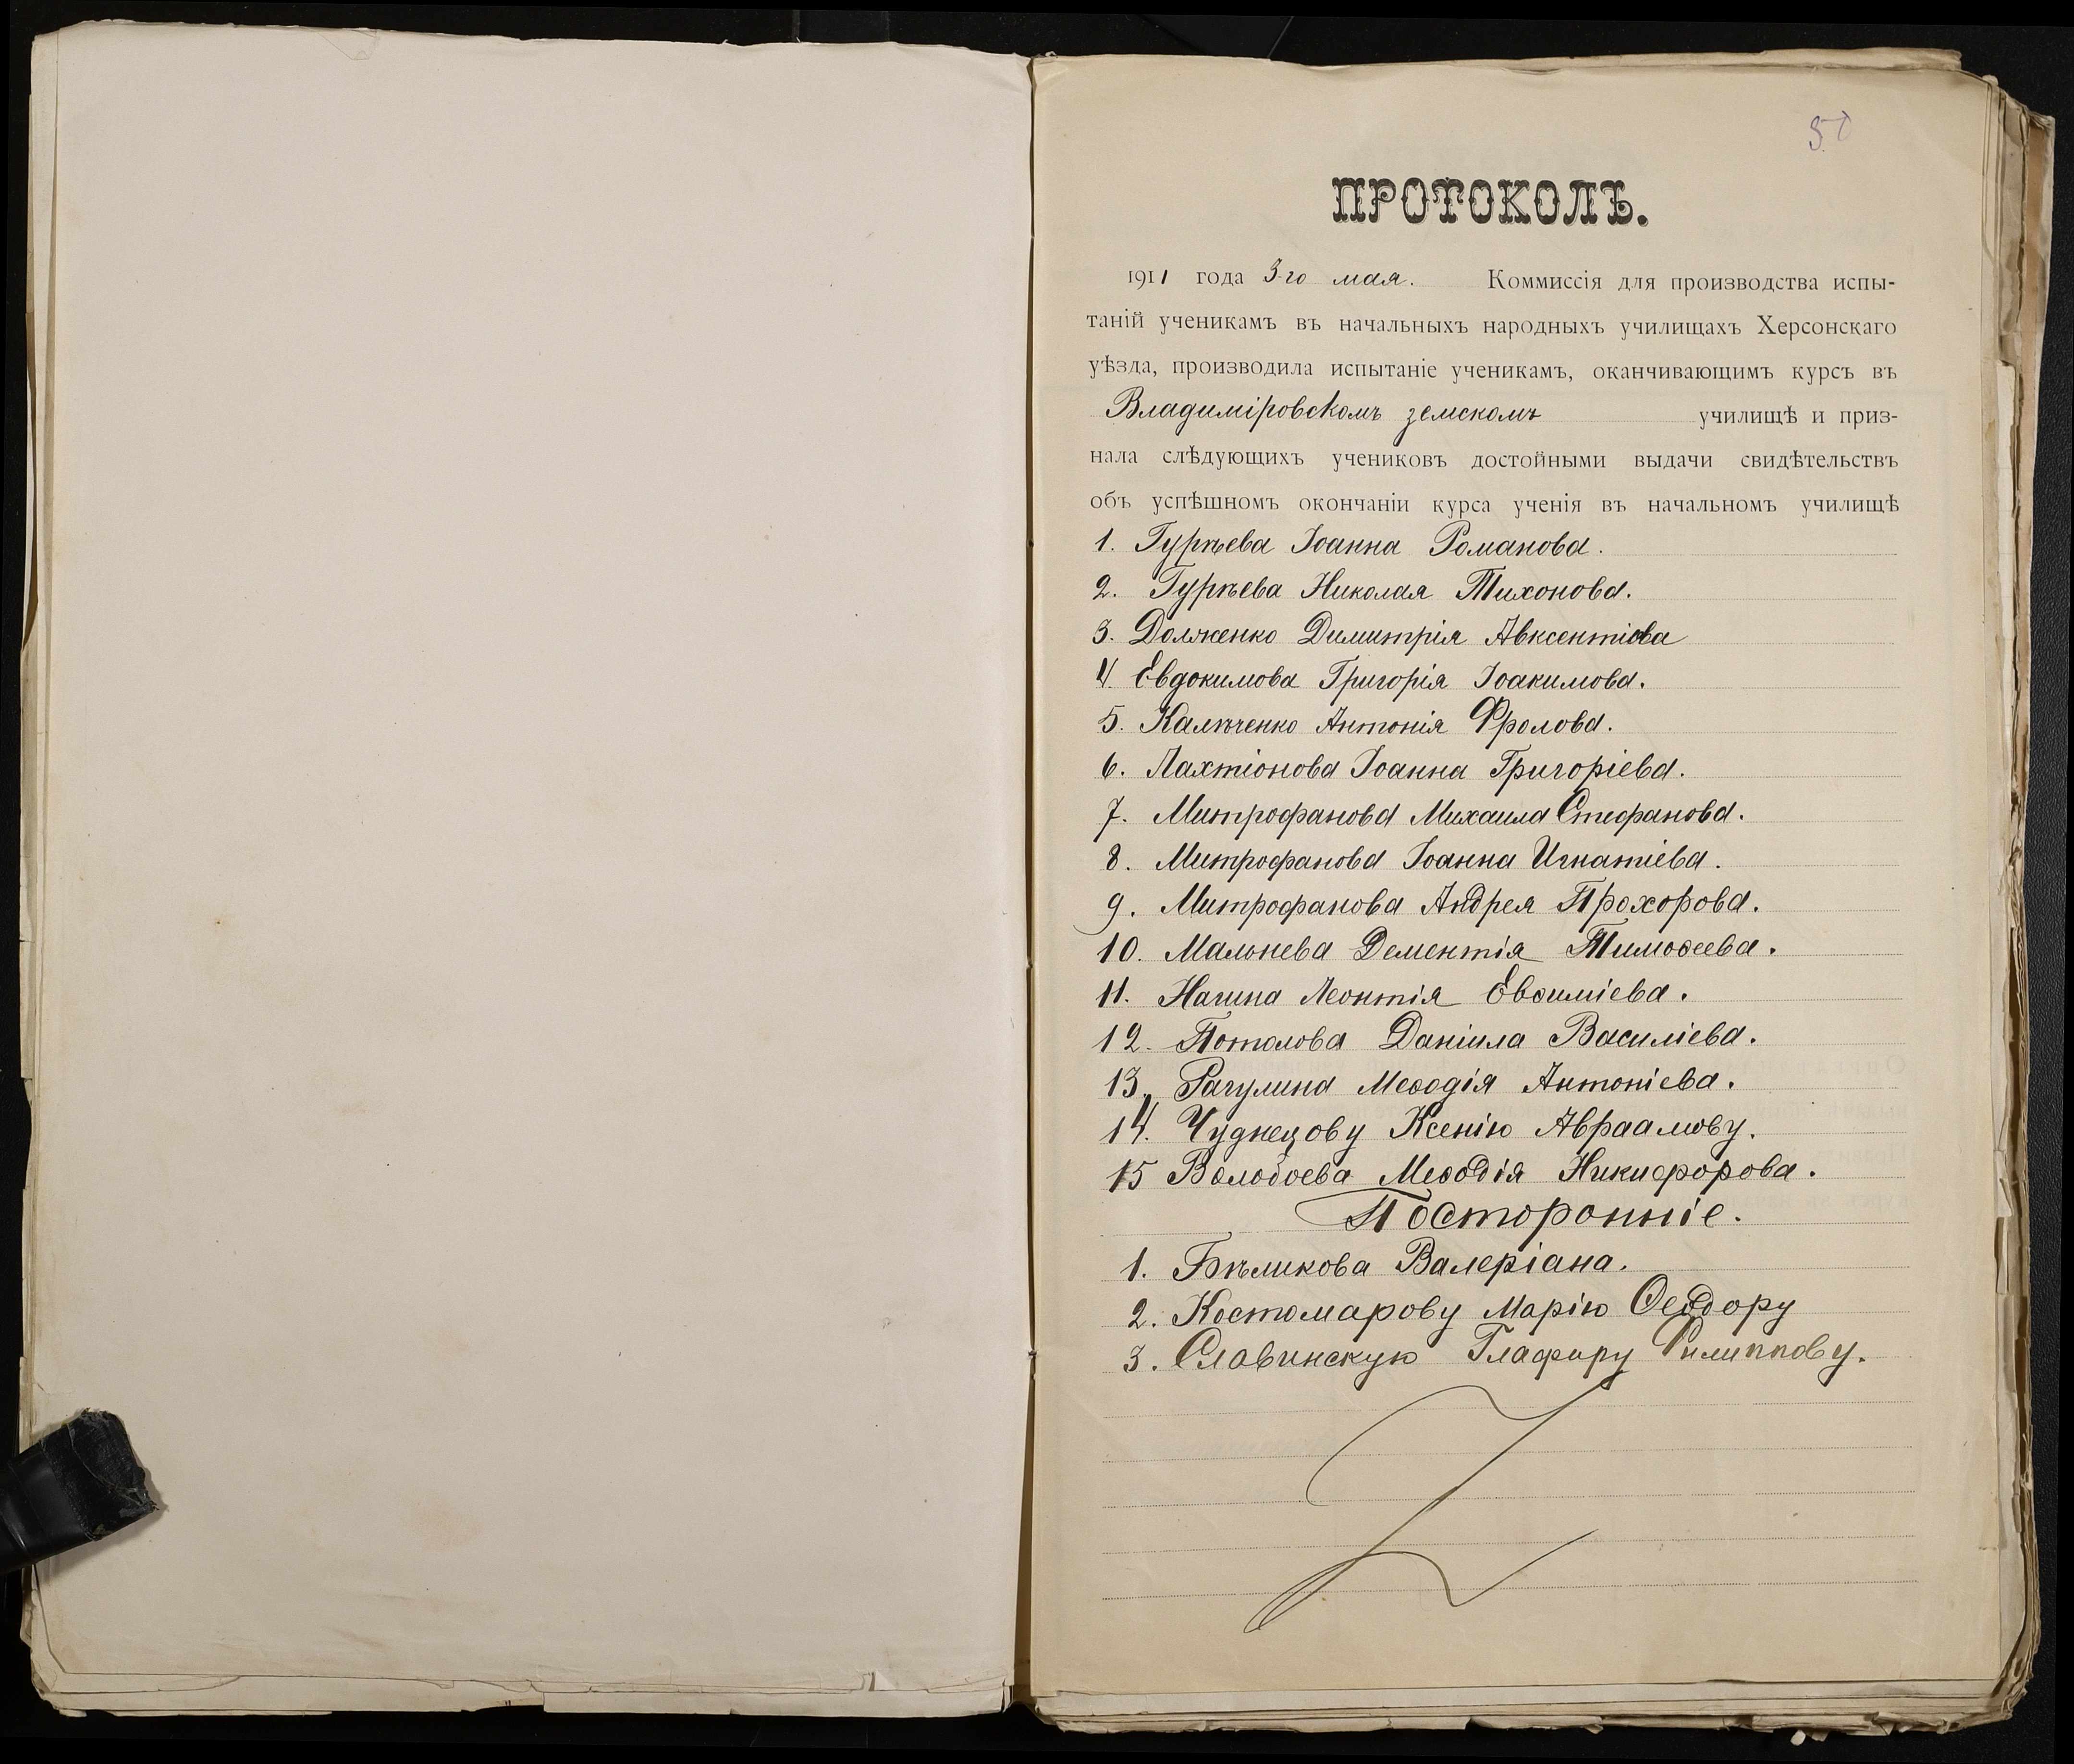 50
ПРОТОКОЛЪ.
1911 года 3-го мая. Коммиссія для производства испы-
таній ученикамъ въ начальныхъ народныхъ училищахъ Херсонскаго
уѣзда, производила испытаніе ученикамъ, оканчивающимъ курсъ въ
Владиміровскомъ земскомъ училищѣ и приз-
нала слѣдующихъ учениковъ достойными выдачи свидѣтельствъ
объ успѣшномъ окончаніи курса ученія въ начальномъ училищѣ
1. Гурѣева Іоанна Романова.
2. Гурѣева Николая Тихонова.
3. Долженко Димитрія Авксентіева
4. Евдокимова Григорія Іоакимова.
5. Калѣченко Антонія Фролова.
6. Лахтіонова Іоанна Григоріева.
7. Митрофанова Михаила Стефанова.
8. Митрофанова Іоанна Игнатіева.
9. Митрофанова Андрея Прохорова.
10. Мальнева Дементія Тимоѳеева.
11. Нагина Леонтія Евѳиміева.
12. Потолова Даніила Василіева.
13. Рагулина Меѳодія Антоніева.
14. Чуднецову Ксенію Авраамову.
15 Волобоева Меѳодія Никифорова.
Посторонніе.
1. Бѣликова Валеріана.
2. Костомарову Марію Ѳеодору
3. Славинскую Глафиру Филиппову.